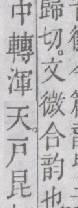 歸切。文微合韵也
中轉渾天。戸昆